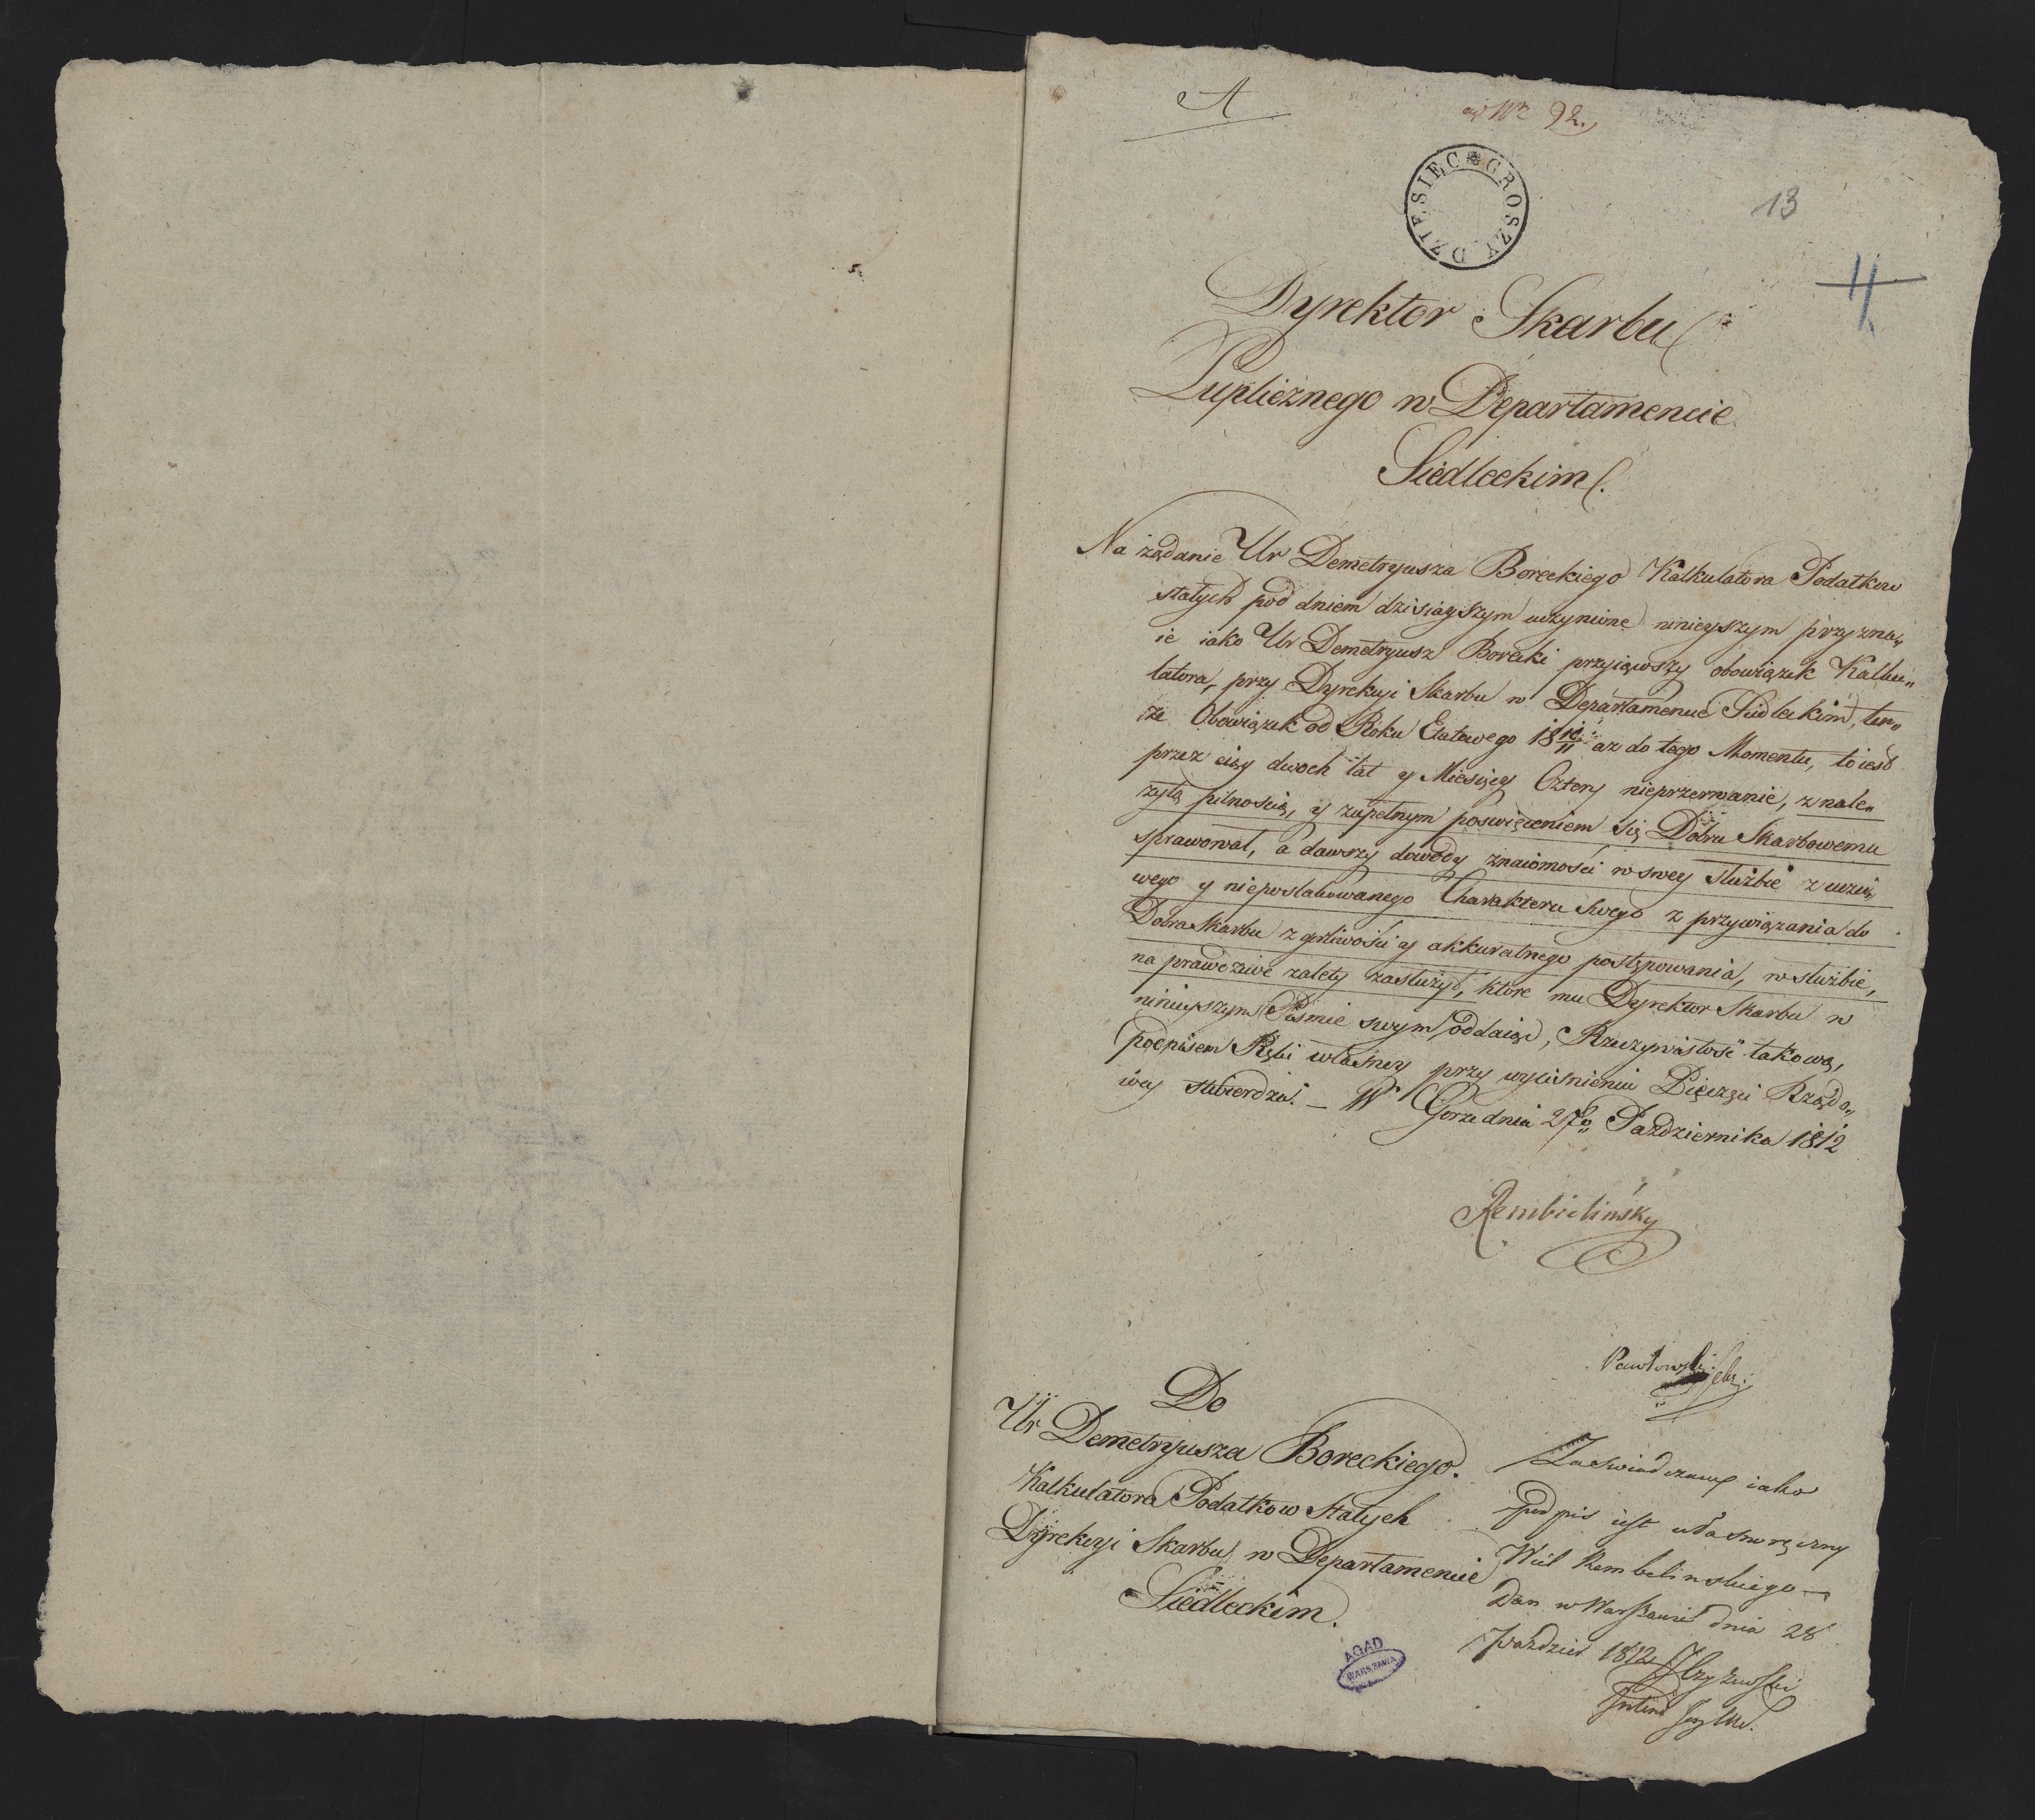 A
ad Nr 92.
DZIESIĘC GROSZY
13
4
Dyrektor Skarbu
Puplicznego w Departamencie
Siedleckim.
Na żądanie Ur Demetryusza Boreckiego Kalkulatora Podatkow
stałych pod dniem dzisiayszym uczynione ninieyszym przyzna„
ie iako Ur Demetryusz Borecki przyiąwszy obowiązek Kalku„
latora, przy Dyrekcyi Skarbu w Departamencie Siedleckim, ten„
że Obowiązek od Roku Etatowego 18 10/11 aż do tego Momentu, to iest
przez ciąg dwoch lat y Miesięcy Cztery nieprzerwanie, z nale„
żytą pilnością, y zupełnym poswięceniem się Dobru Skarbowemu
sprawował, a dawszy dowody znaiomości w swey służbie z uczci„
wego y nieposlakowanego Charakteru swego z przywiązania do
Dobra Skarbu z gorliwości y akkuratnego postępowania, w służbie,
na prawdziwe zalety zasłużył, ktore mu Dyrektor Skarbu w
ninieyszym Pismie swym oddaiąc, Rzeczywistość takową,
podpisem Ręki własney przy wyciśnieniu Pięczęci Rządo„
wey stwierdza. – W Gorze dnia 27o Pazdziernika 1812
Rembielinsky
Pawłowski
Do
Ur Demetryusza Boreckiego.
Kalkulatora Podatkow Stałych
Dyrekcyi Skarbu w Departamencie
Siedleckim.
Zaswiadczamy iako
podpis iest własnoręczny
Wiel Rembelinskiego –
Dan w Warszawie dnia 28
Pazdzier 1812
AGAD
WARSZAWA